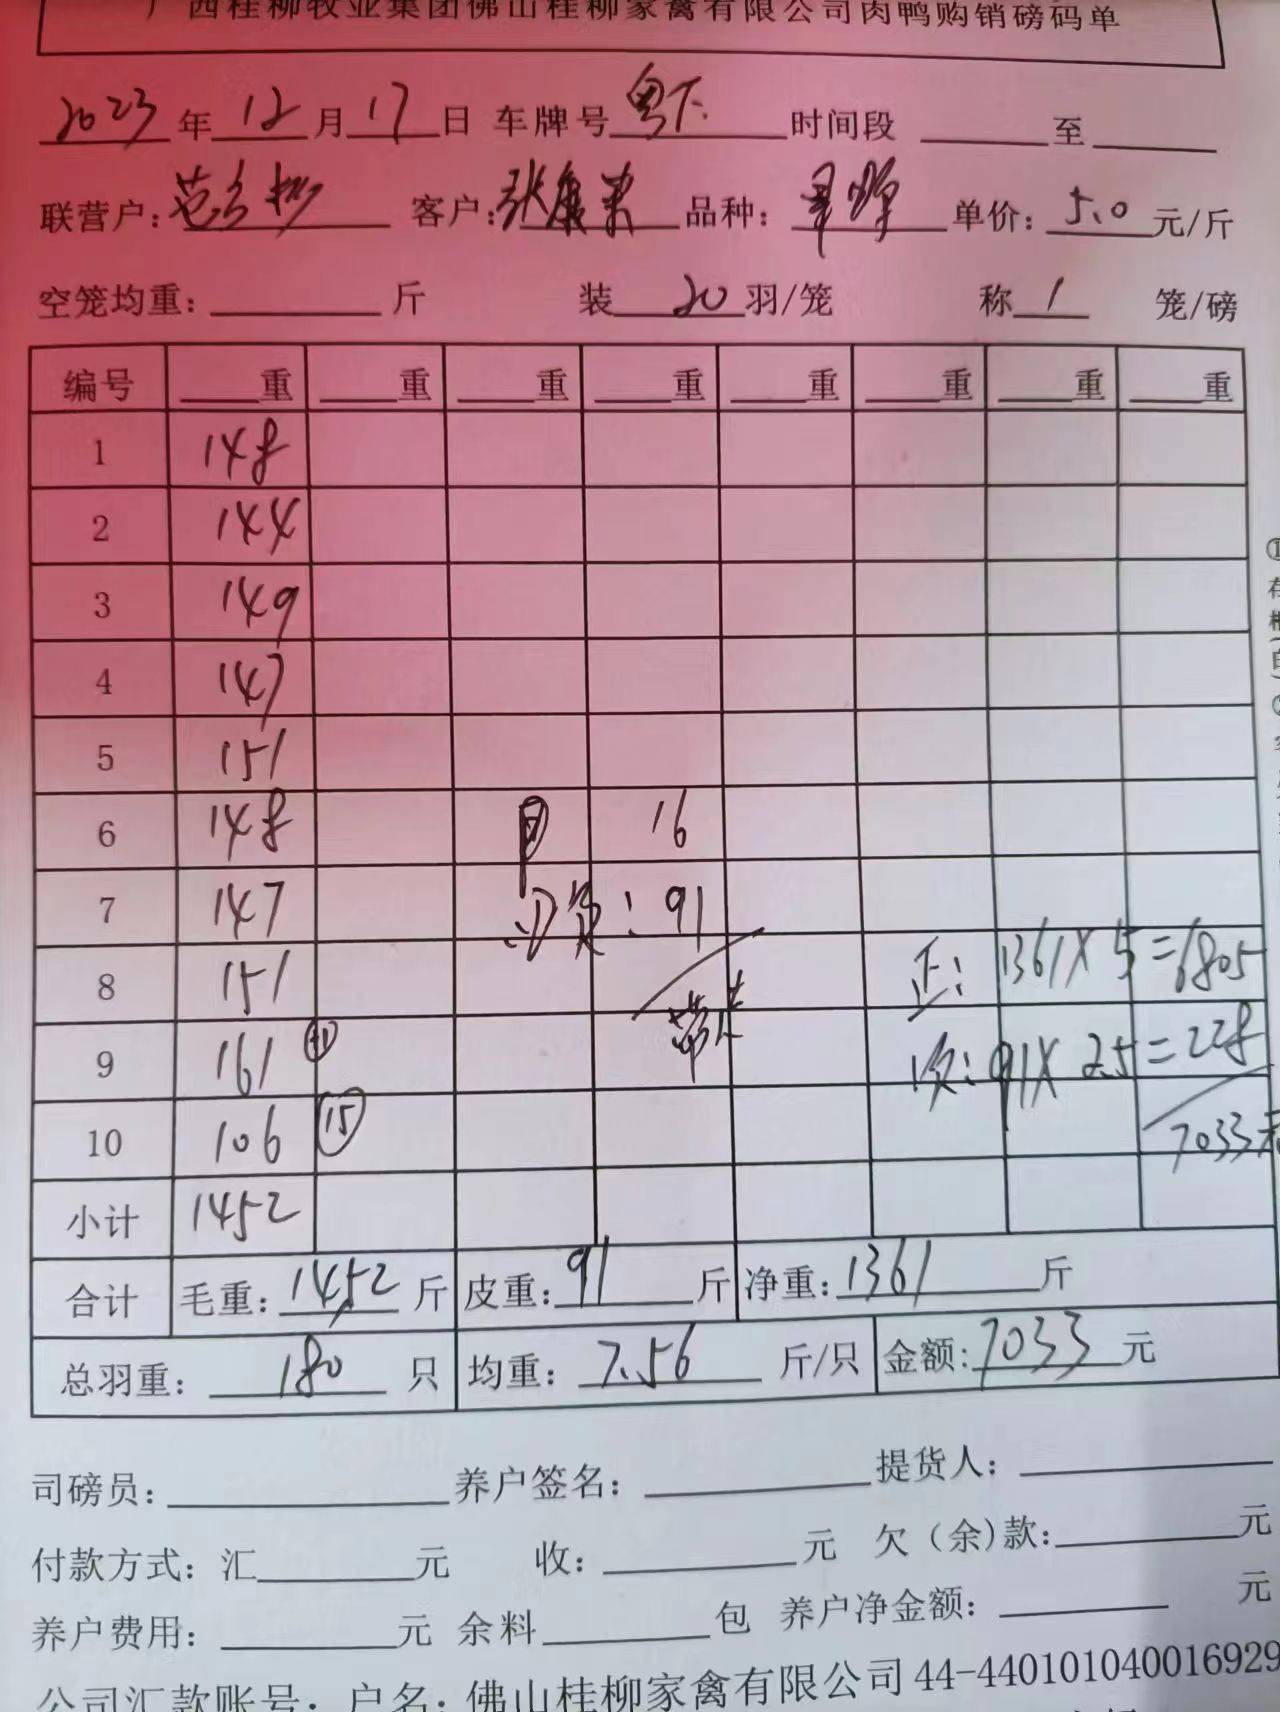 广西桂柳牧业集团佛山桂柳家禽有限公司肉鸭购销磅码单
2023年12月17日 车牌号粤 时间段 至
联营户: 范 客户:张康 品种: 单价:5.0元/斤
空笼均重: 斤 装20羽/笼 称1 笼/磅
编号 重 重 重 重 重 重 重 重
1 148
2 144
3 149
4 147
5 151
6 148 16
7 147 次: 91
8 151 正: 1361X5=6805
9 161 带 次: 91X2.5=228
10 106 15 7033元
小计 1452
合计 毛重:1452斤 皮重:91斤 净重:1361斤
总羽重: 180只 均重:7.56斤/只 金额:7033元
司磅员: 养户签名: 提货人:
付款方式: 汇 元 收: 元 欠(余)款: 元
养户费用: 元 余料 包 养户净金额: 元
公司汇款账号: 户名: 佛山桂柳家禽有限公司44-440101040016929